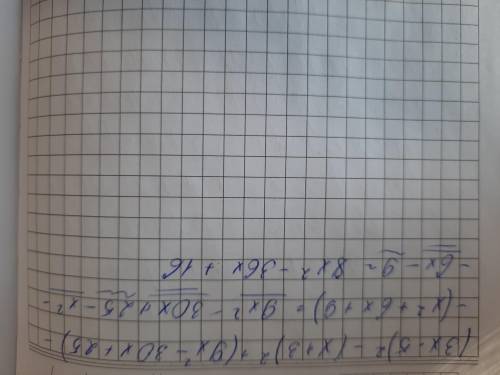 (3x-5)² - (x+3)² + (9x² - 30x + 25) -
-(x² + 6x + 9) = 9x² - 30x + 25 - x² -
- 6x - 9 = 8x² - 36x + 16